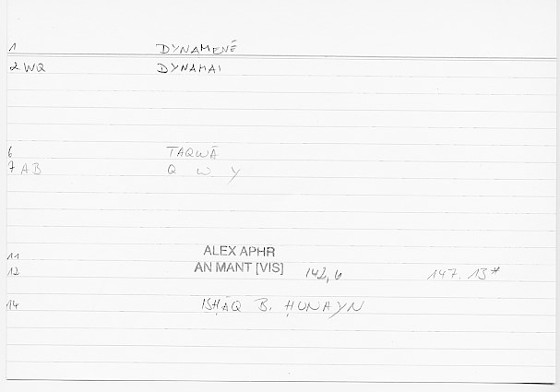 1 DYNAMENÉ
2 WQ DYNAMAI
6 TAQWĀ
7 AB Q W Y
11 ALEX APHR
12 AN MANT [VIS] 142,6 147.13*
14 ISḤĀQ B. ḤUNAYN